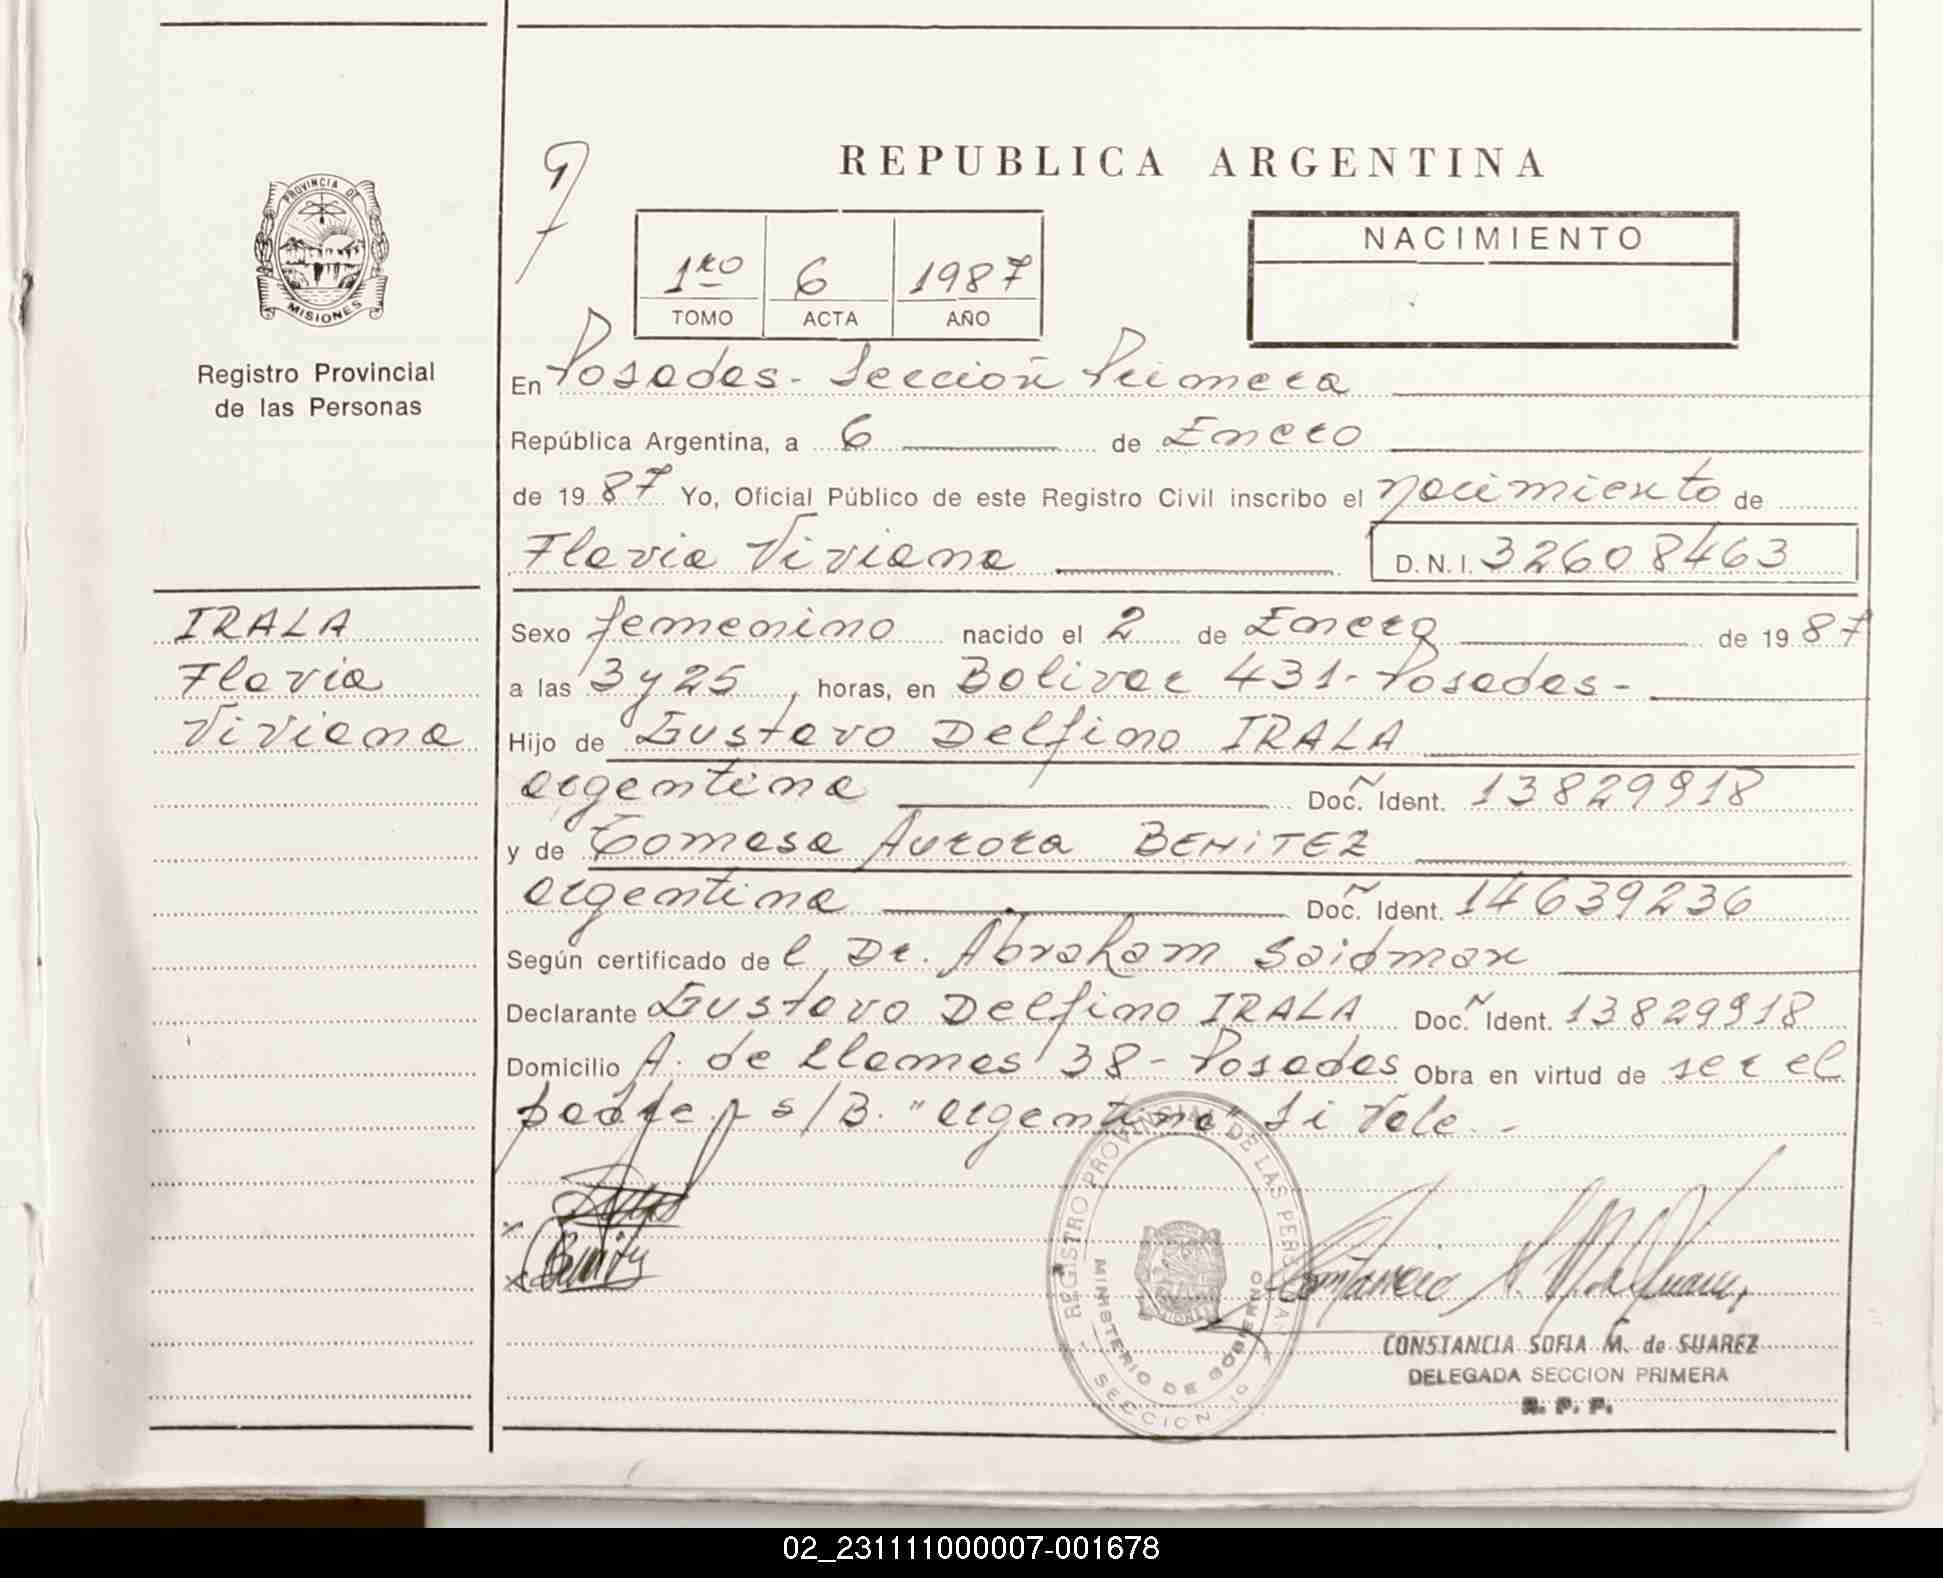 REPUBLICA ARGENTINA
PROVINCIA DE
MISIONES
Registro Provincial
de las Personas
1ro 6 1987
TOMO ACTA AÑO
NACIMIENTO
En Posadas - Sección Primera
República Argentina, a 6 de Enero
de 1987 Yo, Oficial Público de este Registro Civil inscribo el nacimiento de
Flavia Viviana D.N.I. 32608463
IRALA
Flavia
Viviana
Sexo femenino nacido el 2 de Enero de 1987
a las 3 y 25, horas, en Bolivar 431 - Posadas -
Hijo de Gustavo Delfino IRALA
argentina Doc. Ident. 13829918
y de Tomasa Aurora BENiTEZ
argentina Doc. Ident. 14639236
Según certificado del Dr. Abraham Saidman
Declarante Gustavo Delfino IRALA Doc. Ident. 13829918
Domicilio A. de Llamas 38 - Posadas Obra en virtud de ser el
padre s/B. "argentino" Si Vale. -
REGISTRO PROVINCIAL DE LAS PERSONAS
MINISTERIO DE GOBIERNO
SECCION 1a
CONSTANCIA SOFIA M. de SUAREZ
DELEGADA SECCION PRIMERA
R. P. P.
02_231111000007-001678